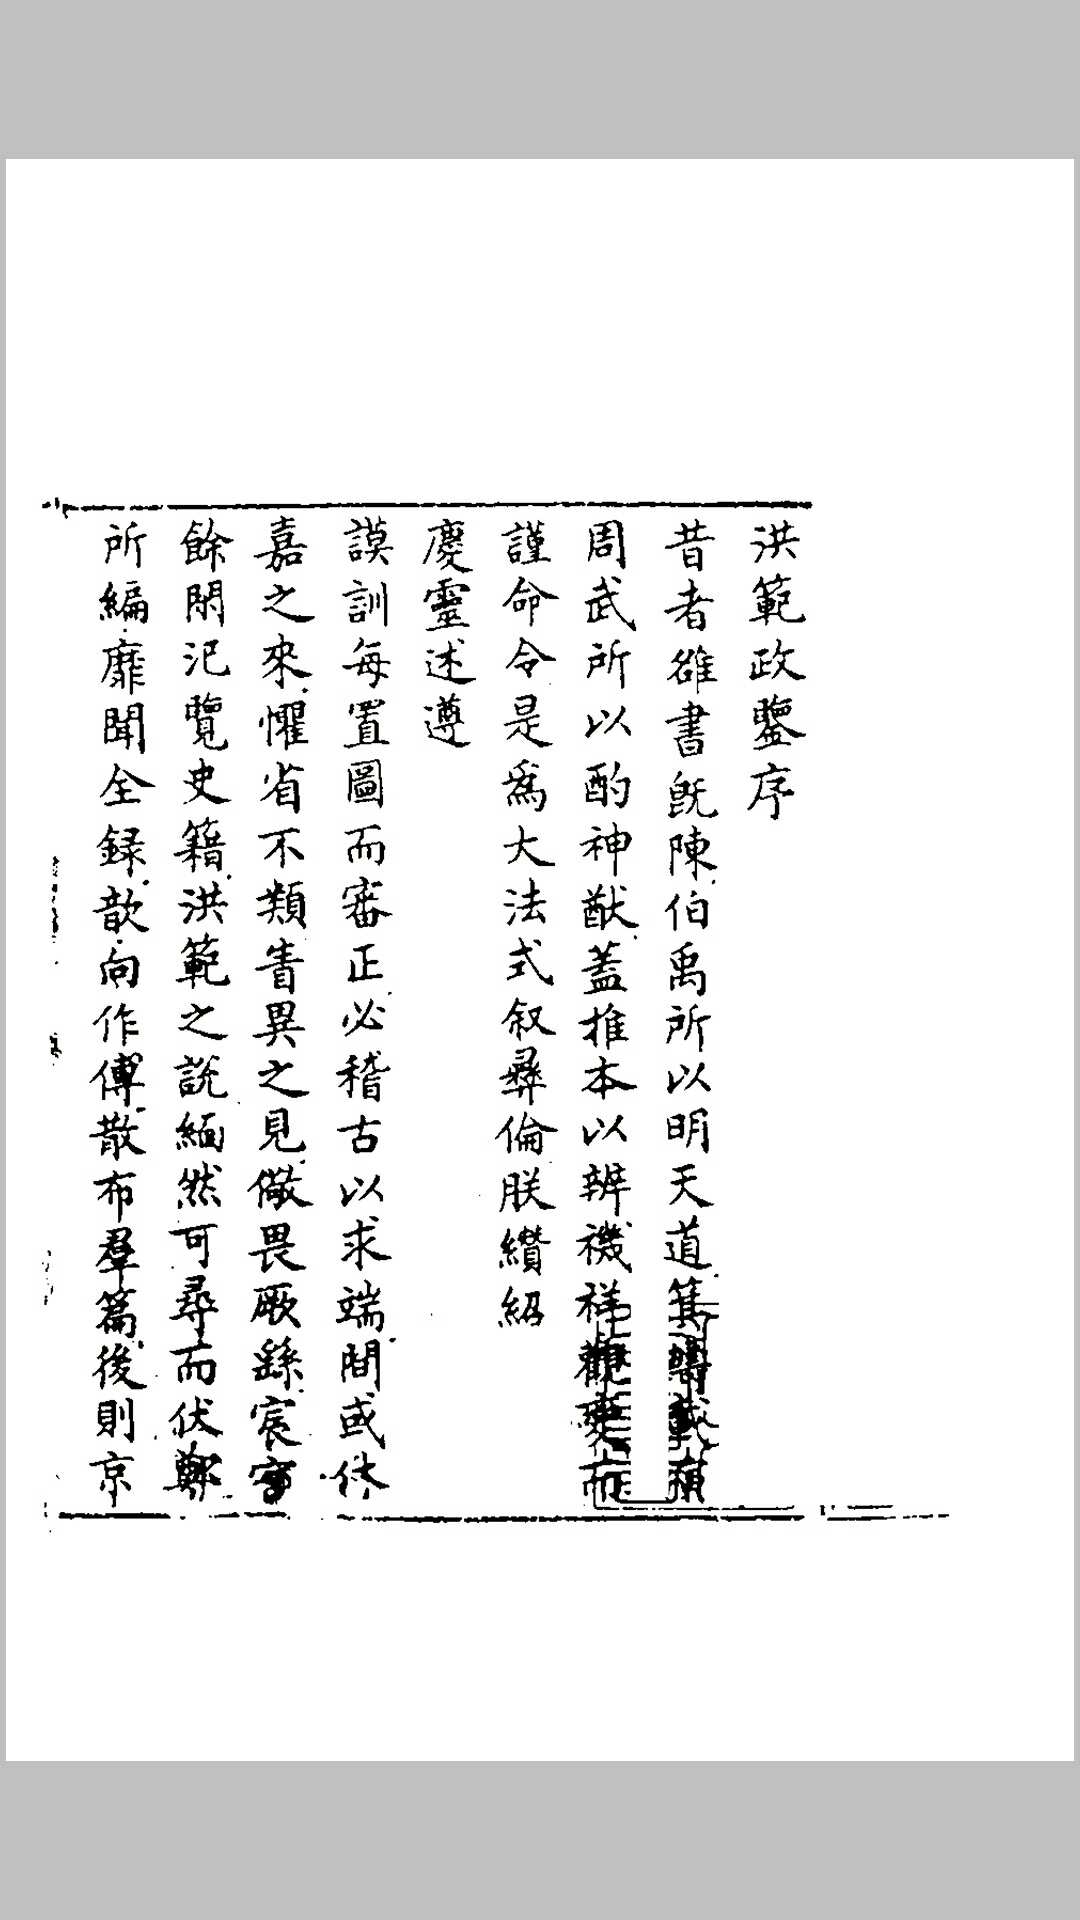 洪範政鑒序
昔者雒書既陳伯禹所以明天道箕疇載
周武所以酌神猷蓋推本以辨禨祥觀變而
謹命令是爲大法式叙彝倫朕纘紹
慶靈述遵
謨訓每置圖而審正必稽古以求端間或休
嘉之來懼省不類眚異之見儆畏厥繇宸
餘閑汜覽史籍洪範之說緬然可尋而伏鄭
所編靡聞全録歆向作傳散布羣篇後則京